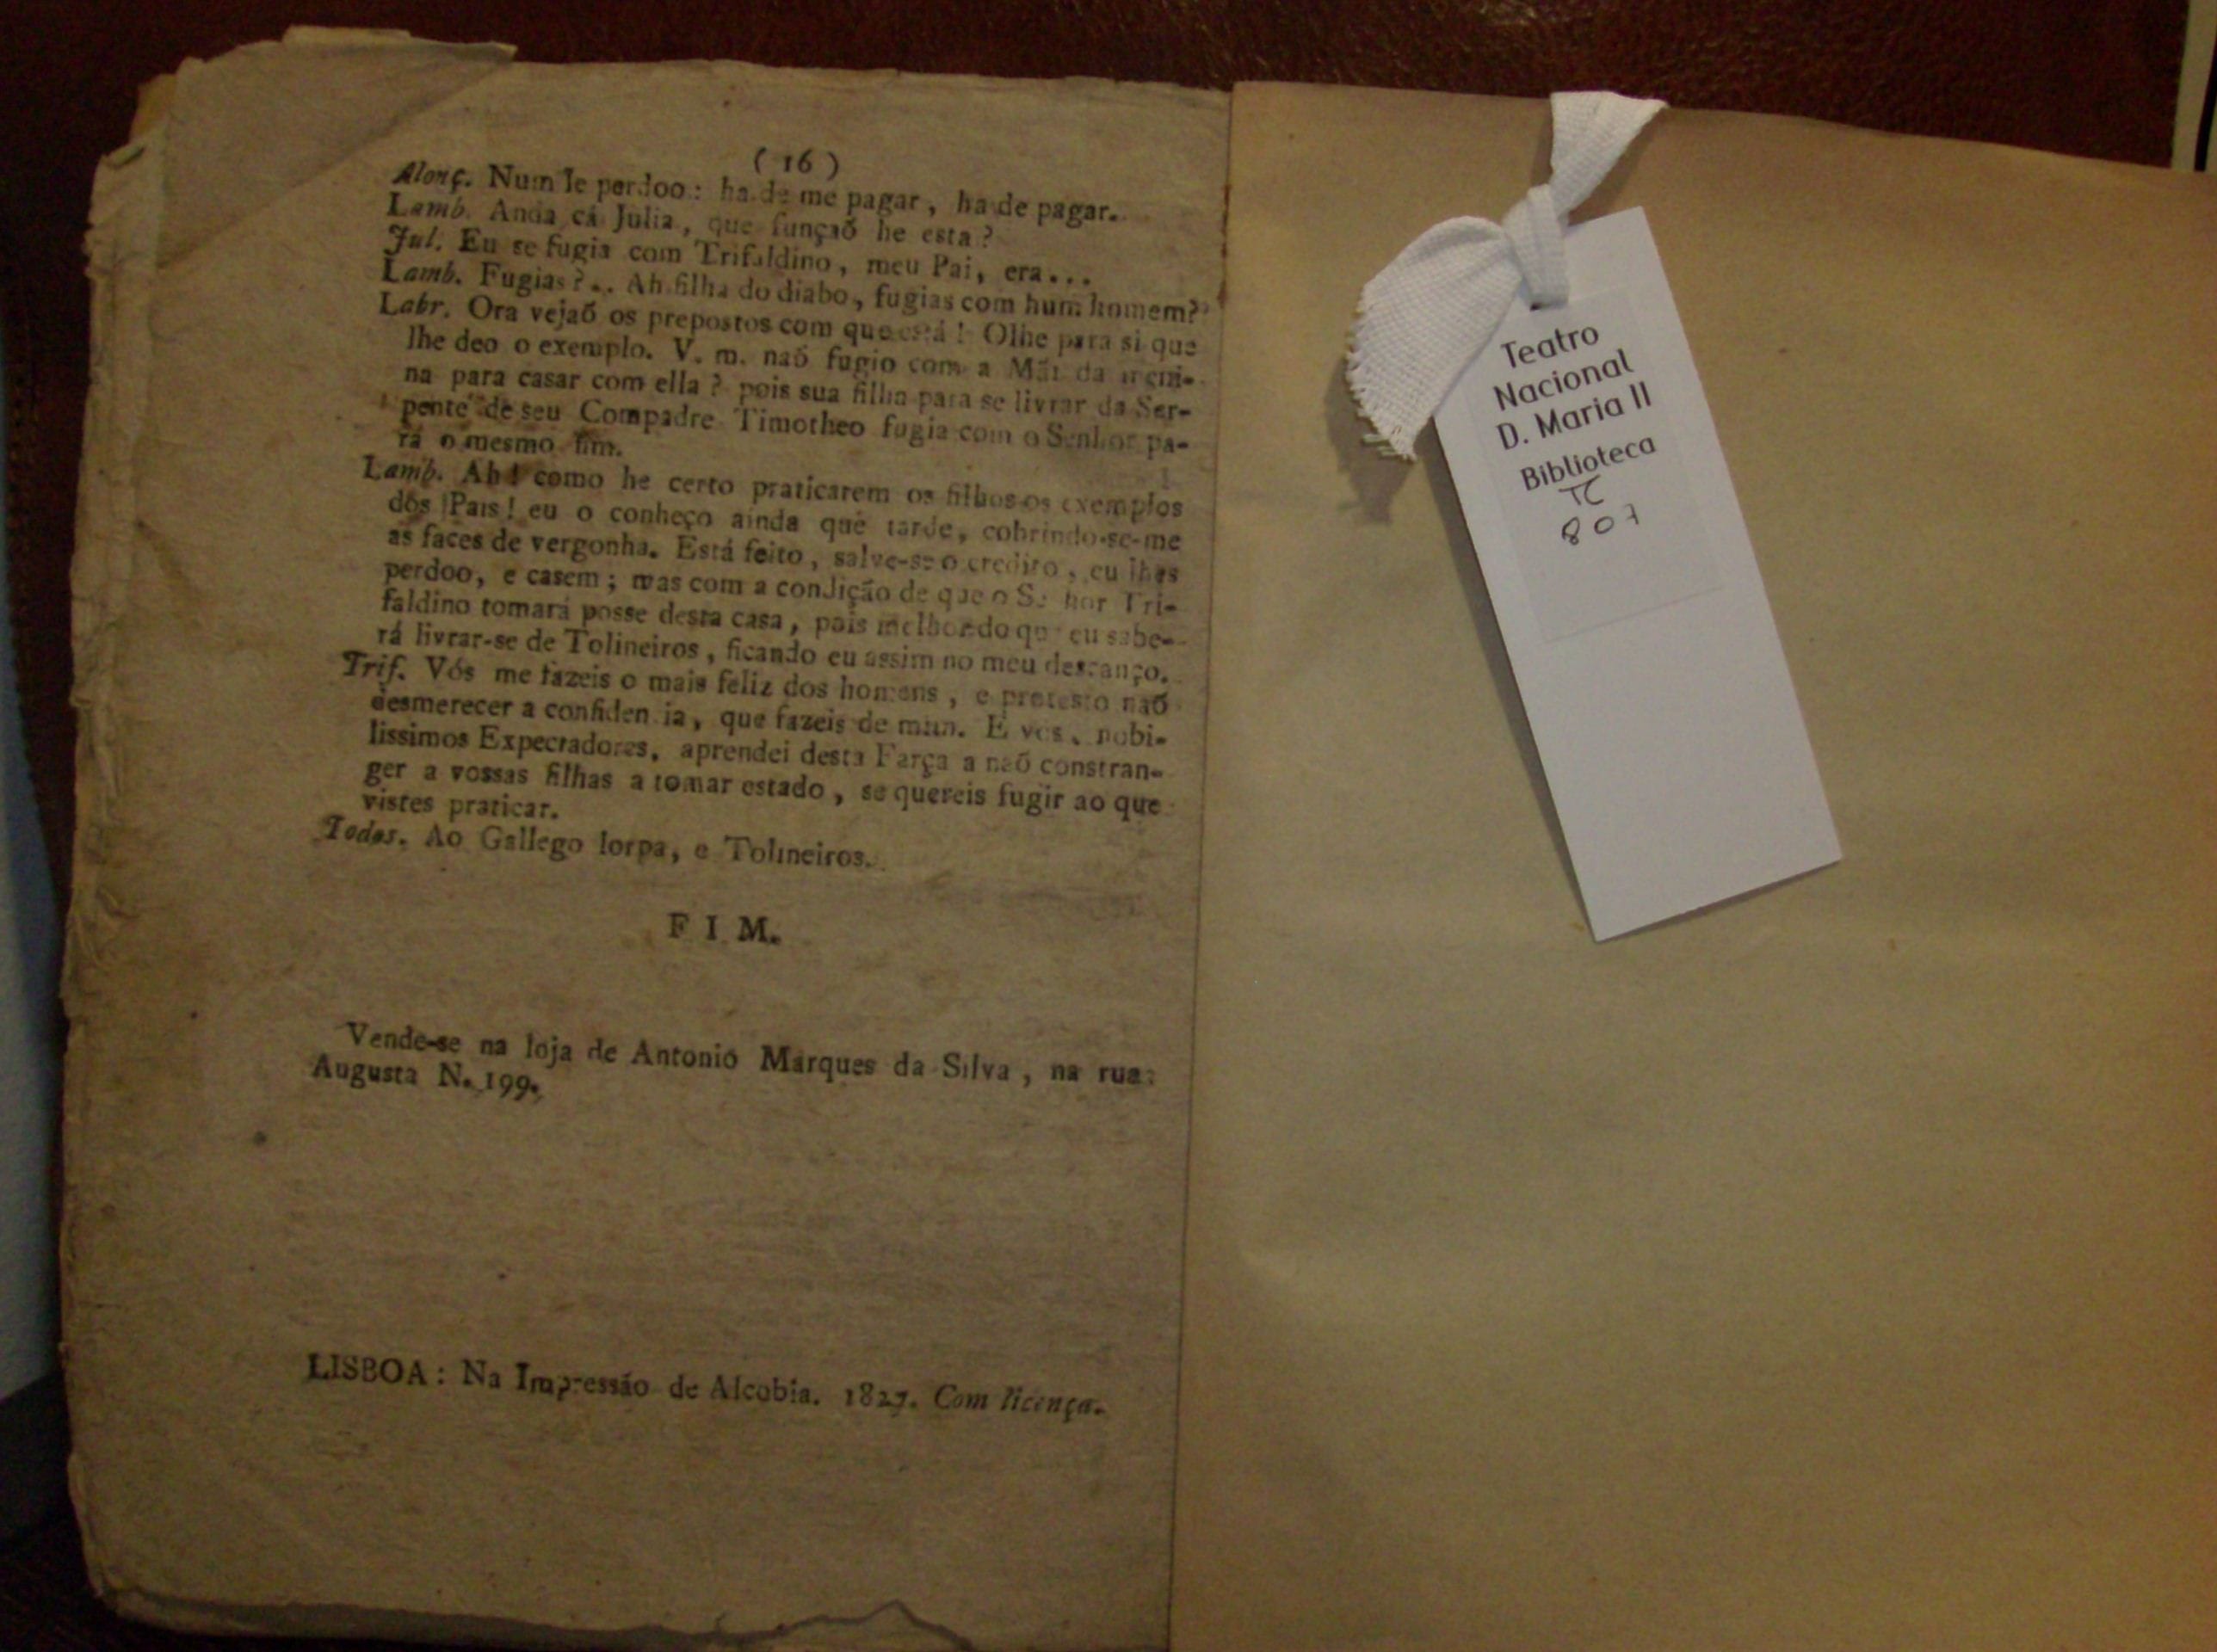 ( 16 )
Alonç. Num le perdoo: ha de me pagar, ha de pagar.
Lamb. Anda cá Julia, que funçaõ he esta?
Jul. Eu se fugia com Trifaldino, meu Pai, era...
Lamb. Fugias?.. Ah filha do diabo, fugias com hum homem?
Labr. Ora vejaõ os prepostos com que está! Olhe para si que
lhe deo o exemplo. V. m. naõ fugio com a Mãi da meni-
na para casar com ella? pois sua filha para se livrar da Ser-
pente de seu Compadre Timotheo fugia com o Senhor pa-
ra o mesmo fim.
Lamb. Ah! como he certo praticarem os filhos os exemplos
dos Pais! eu o conheço ainda que tarde, cobrindo-se-me
as faces de vergonha. Está feito, salve-se o credito, eu lhes
perdoo, e casem; mas com a condição de que o Se hor Tri-
faldino tomará posse desta casa, pois melhor do que eu sabe-
rá livrar-se de Tolineiros, ficando eu assim no meu descanço.
Trif. Vós me fazeis o mais feliz dos homens, e protesto naõ
desmerecer a confiden ia, que fazeis de mim. E vos, nobi-
lissimos Expectadores, aprendei desta Farça a naõ constran-
ger a vossas filhas a tomar estado, se quereis fugir ao que
vistes praticar.
Todos. Ao Gallego lorpa, e Tolineiros.
FIM.
Vende-se na loja de Antonio Marques da Silva, na rua
Augusta N. 199.
LISBOA: Na Impressão de Alcobia. 1827. Com licença.
Teatro
Nacional
D. Maria II
Biblioteca
TC
807